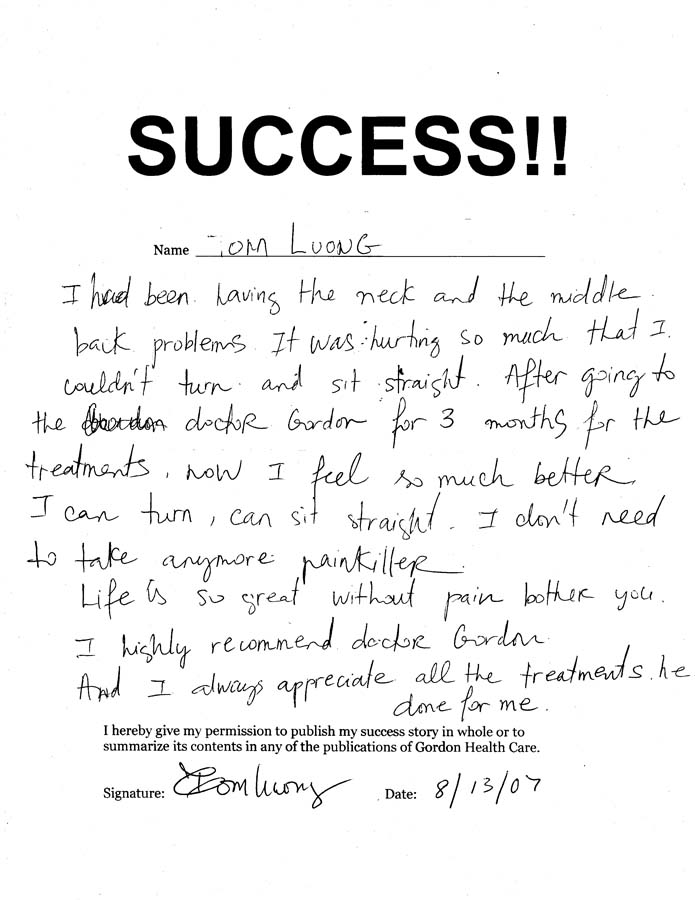 SUCCESS!!
Name Tom Luong
I had been having the neck and the middle
back problems. It was hurting so much that I
couldn't turn and sit straight. After going to
the doctor Gordon for 3 months for the
treatments, now I feel so much better.
I can turn, can sit straight. I don't need
to take anymore painkiller.
Life is so great without pain bother you.
I highly recommend doctor Gordon.
And I always appreciate all the treatments he
done for me.
I hereby give my permission to publish my success story in whole or to
summarize its contents in any of the publications of Gordon Health Care.
Signature: Tom Luong Date: 8/13/07